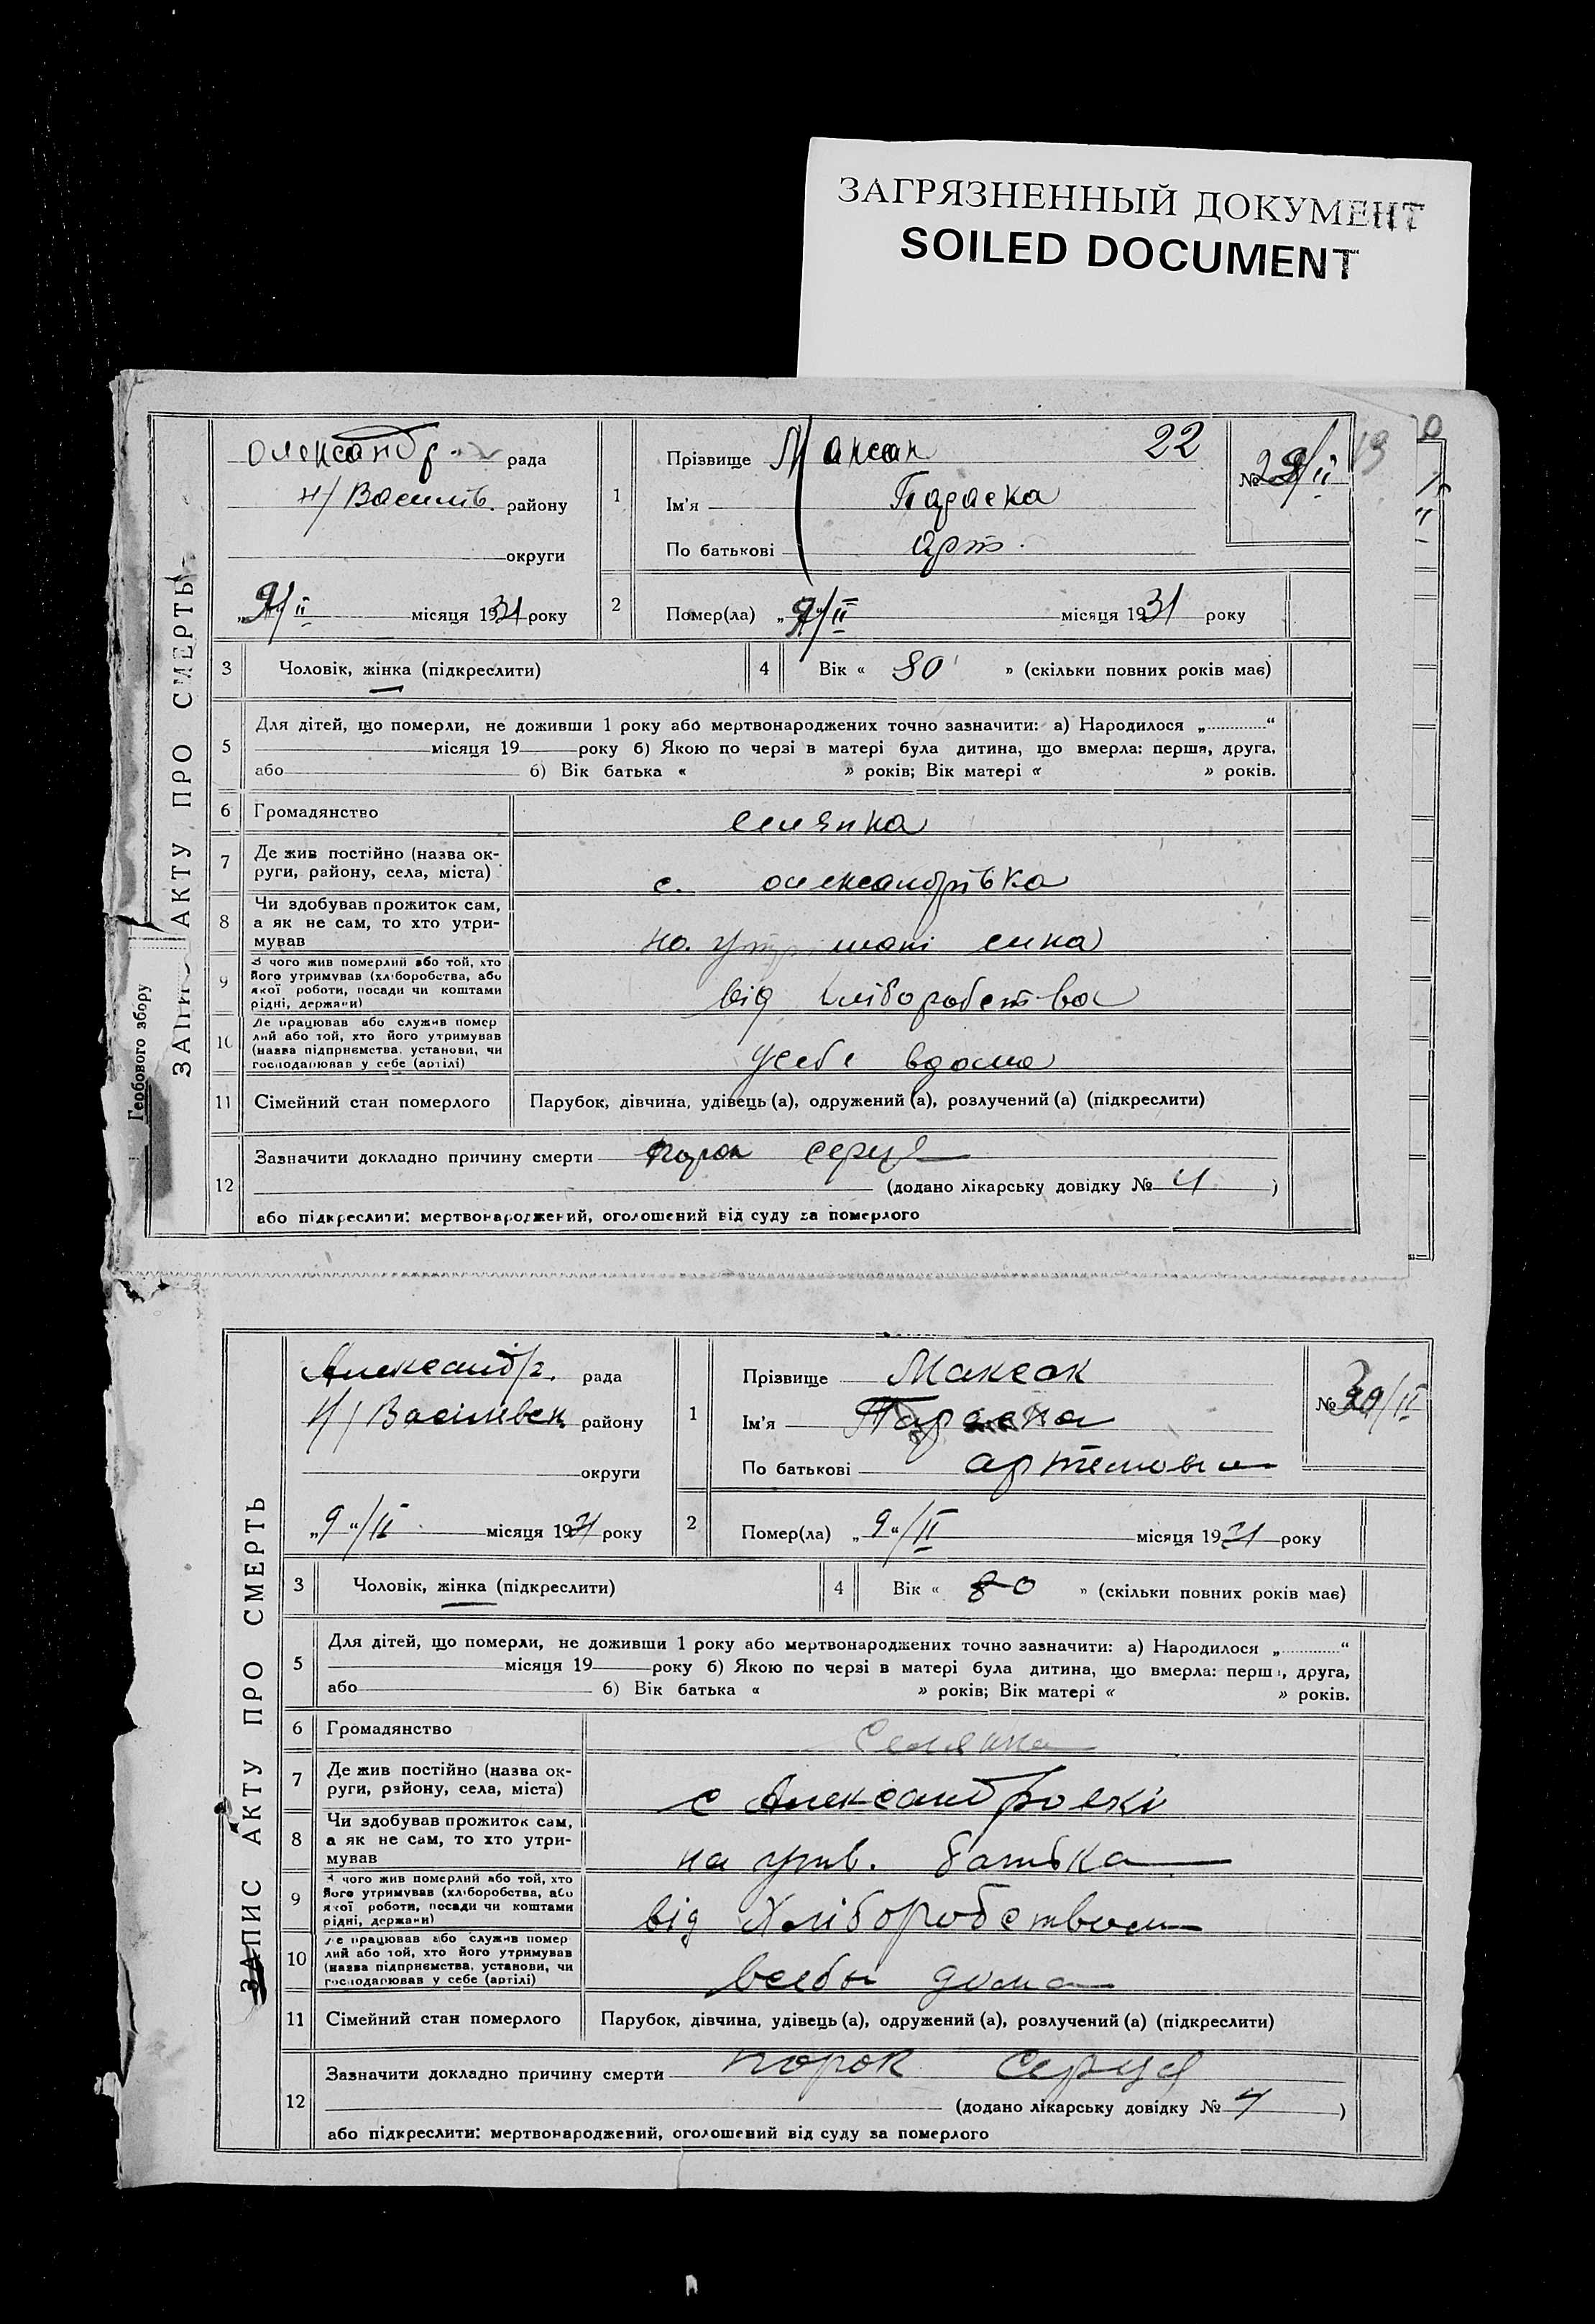 ЗАГРЯЗНЕННЫЙ ДОКУМЕНТ
SOILED DOCUMENT
ЗАПИС АКТУ ПРО СМЕРТЬ
Геобового збору
Олександр. рада
Н/Василів. району
округи
9/II місяця 1931 року
1 Прізвище Максак 22
Ім'я Параска
По батькові Арт.
№ /II 13
2 Помер(ла) „9“/II місяця 1931 року
3 Чоловік, жінка (підкреслити)
4 Вік « 80 » (скільки повних років має)
5 Для дітей, що померли, не доживши 1 року або мертвонароджених точно зазначити: а) Народилося „ “
місяця 19 року б) Якою по черзі в матері була дитина, що вмерла: перша, друга,
або б) Вік батька « » років; Вік матері « » років.
6 Громадянство селянка
7 Де жив постійно (назва ок-
руги, району, села, міста)
с. олександрівка
8 Чи здобував прожиток сам,
а як не сам, то хто утри-
мував
на сина
9 З чого жив померлий або той, хто
його утримував (хліборобства, або
якої роботи, посади чи коштами
рідні, держави)
від хліборобства
10 Де працював або служив помер
лий або той, хто його утримував
(назва підприємства, установи, чи
господарював у себе (артілі)
усебе вдома
11 Сімейний стан померлого Парубок, дівчина, удівець (а), одружений (а), розлучений (а) (підкреслити)
12 Зазначити докладно причину смерти порок серця
(додано лікарську довідку № 4 )
або підкреслити: мертвонароджений, оголошений від суду за померлого
ЗАПИС АКТУ ПРО СМЕРТЬ
Александр. рада
Н/Васілівск. району
округи
„9“/II місяця 1931 року
1 Прізвище Максак
Ім'я Параска
По батькові Артемовни
№ /II
2 Помер(ла) „9“/II місяця 1931 року
3 Чоловік, жінка (підкреслити)
4 Вік « 80 » (скільки повних років має)
5 Для дітей, що померли, не доживши 1 року або мертвонароджених точно зазначити: а) Народилося „ “
місяця 19 року б) Якою по черзі в матері була дитина, що вмерла: перша, друга,
або б) Вік батька « » років; Вік матері « » років.
6 Громадянство Селянка
7 Де жив постійно (назва ок-
руги, району, села, міста)
с Александровкі
8 Чи здобував прожиток сам,
а як не сам, то хто утри-
мував
на батька
9 З чого жив померлий або той, хто
його утримував (хліборобства, або
якої роботи, посади чи коштами
рідні, держави)
від Хліборобством
10 Де працював або служив помер
лий або той, хто його утримував
(назва підприємства, установи, чи
господарював у себе (артілі)
дома
11 Сімейний стан померлого Парубок, дівчина, удівець (а), одружений (а), розлучений (а) (підкреслити)
12 Зазначити докладно причину смерти порок серця
(додано лікарську довідку № 4 )
або підкреслити: мертвонароджений, оголошений від суду за померлого